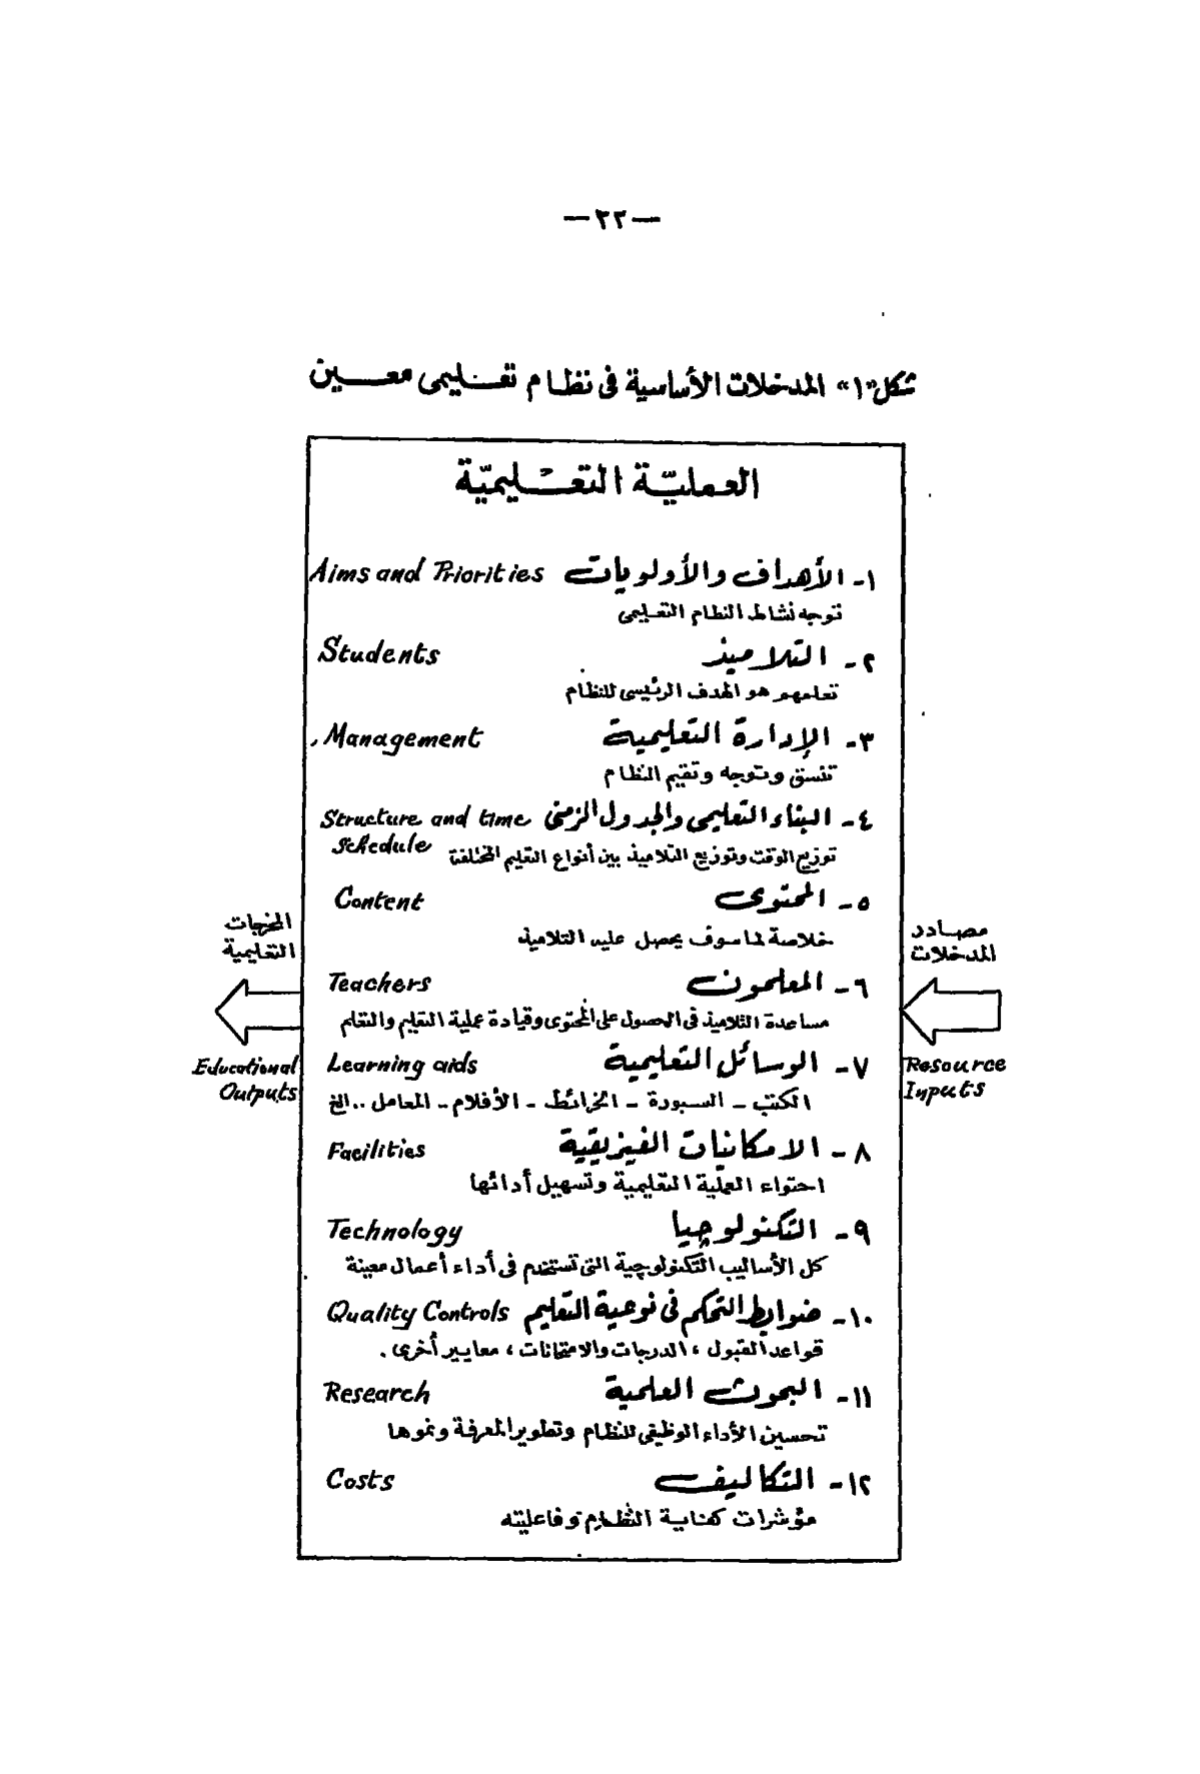 — ٢٢ —
شكل «١» المدخلات الأساسية فى نظام تعليمى معين
العمليّة التعليميّة
١- الأهداف والأولويات Aims and Priorities
توجه نشاط النظام التعليمى
٢- التلاميذ Students
تعلمهم هو الهدف الرئيسى للنظام
٣- الإدارة التعليمية Management
تنسق وتوجه وتقيم النظام
٤- البناء التعليمى والجدول الزمنى Structure and time
Schedule
توزيع الوقت وتوزيع التلاميذ بين أنواع التعليم المختلفة
٥- المحتوى Content
خلاصة لما سوف يحصل عليه التلاميذ
٦- المعلمون Teachers
مساعدة التلاميذ فى الحصول على المحتوى وقيادة عملية التعليم والتعلم
٧- الوسائل التعليمية Learning aids
الكتب - السبورة - الخرائط - الأفلام - المعامل .. الخ
٨- الامكانيات الفيزيقية Facilities
احتواء العملية التعليمية وتسهيل أدائها
٩- التكنولوچيا Technology
كل الأساليب التكنولوچية التى تستخدم فى أداء أعمال معينة
١٠- ضوابط التحكم فى نوعية التعليم Quality Controls
قواعد القبول ، الدرجات والامتحانات ، معايير أخرى .
١١- البحوث العلمية Research
تحسين الأداء الوظيفى للنظام وتطوير المعرفة ونموها
١٢- التكاليف Costs
مؤشرات كفاية النظام وفاعليته
مصادر
المدخلات
Resource
Inputs
المخرجات
التعليمية
Educational
Outputs